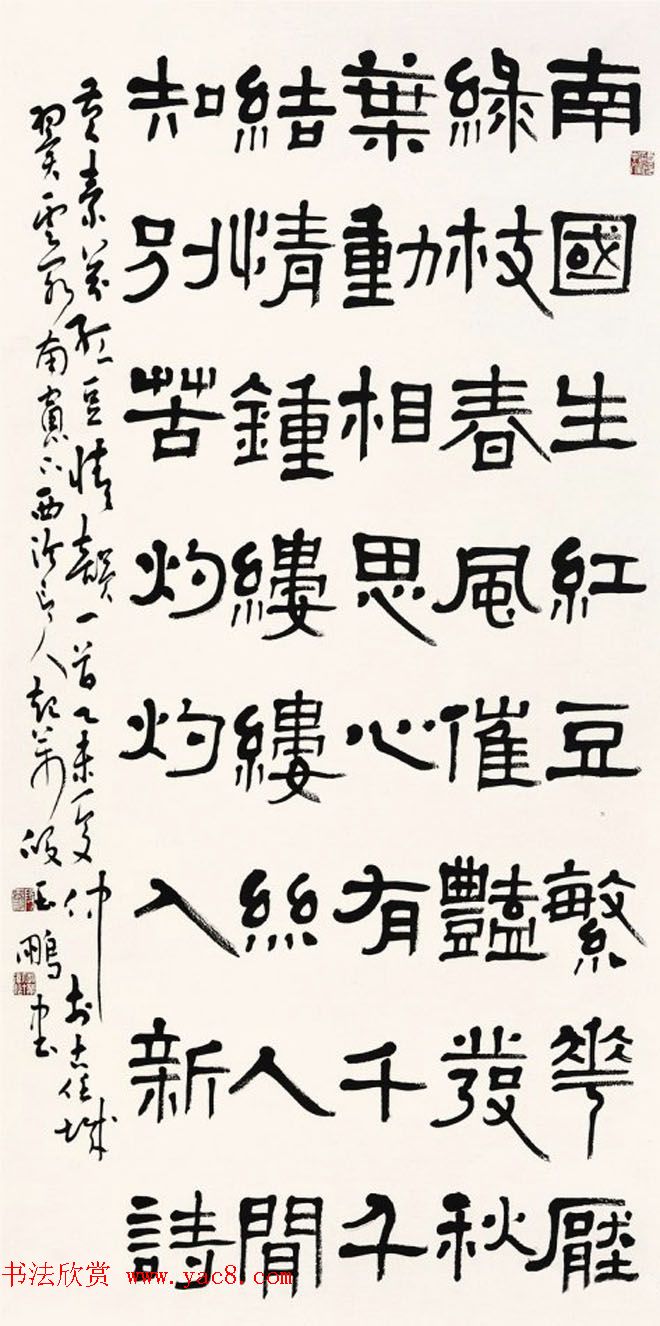 南國生紅豆繁華壓
綠枝春風催豔發秋
葉動相思心有千千
結情鍾縷縷絲人間
知別苦灼灼入新詩
紅豆情韻一首乙未夏仲於古任城
南窗下西 人 段玉鵬書
书法欣赏 www.yac8.com